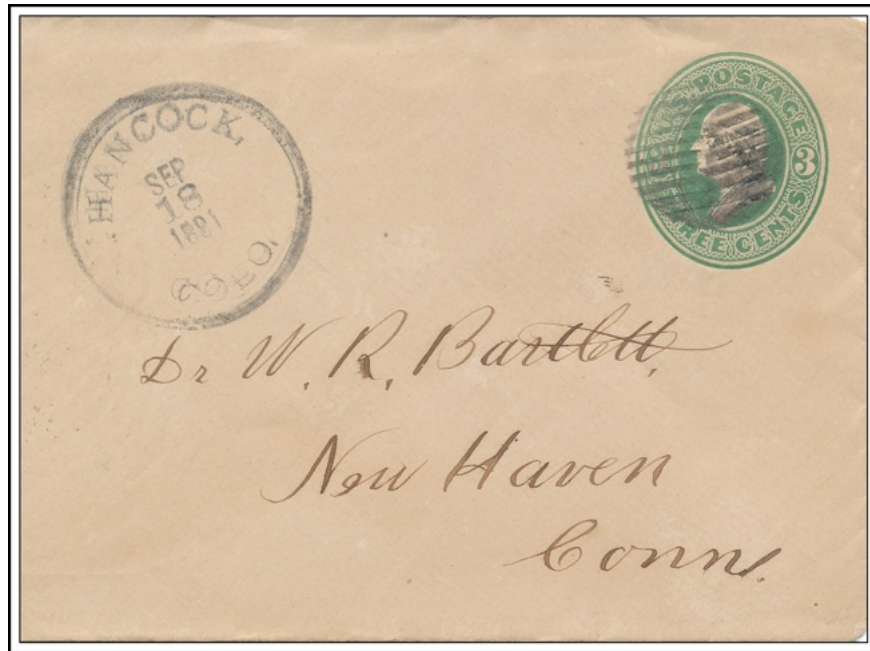 HANCOCK,
SEP
18
1881
COLO.
U.S. POSTAGE
3
THREE CENTS
Dr W. R. Bartlett,
New Haven
Conn.